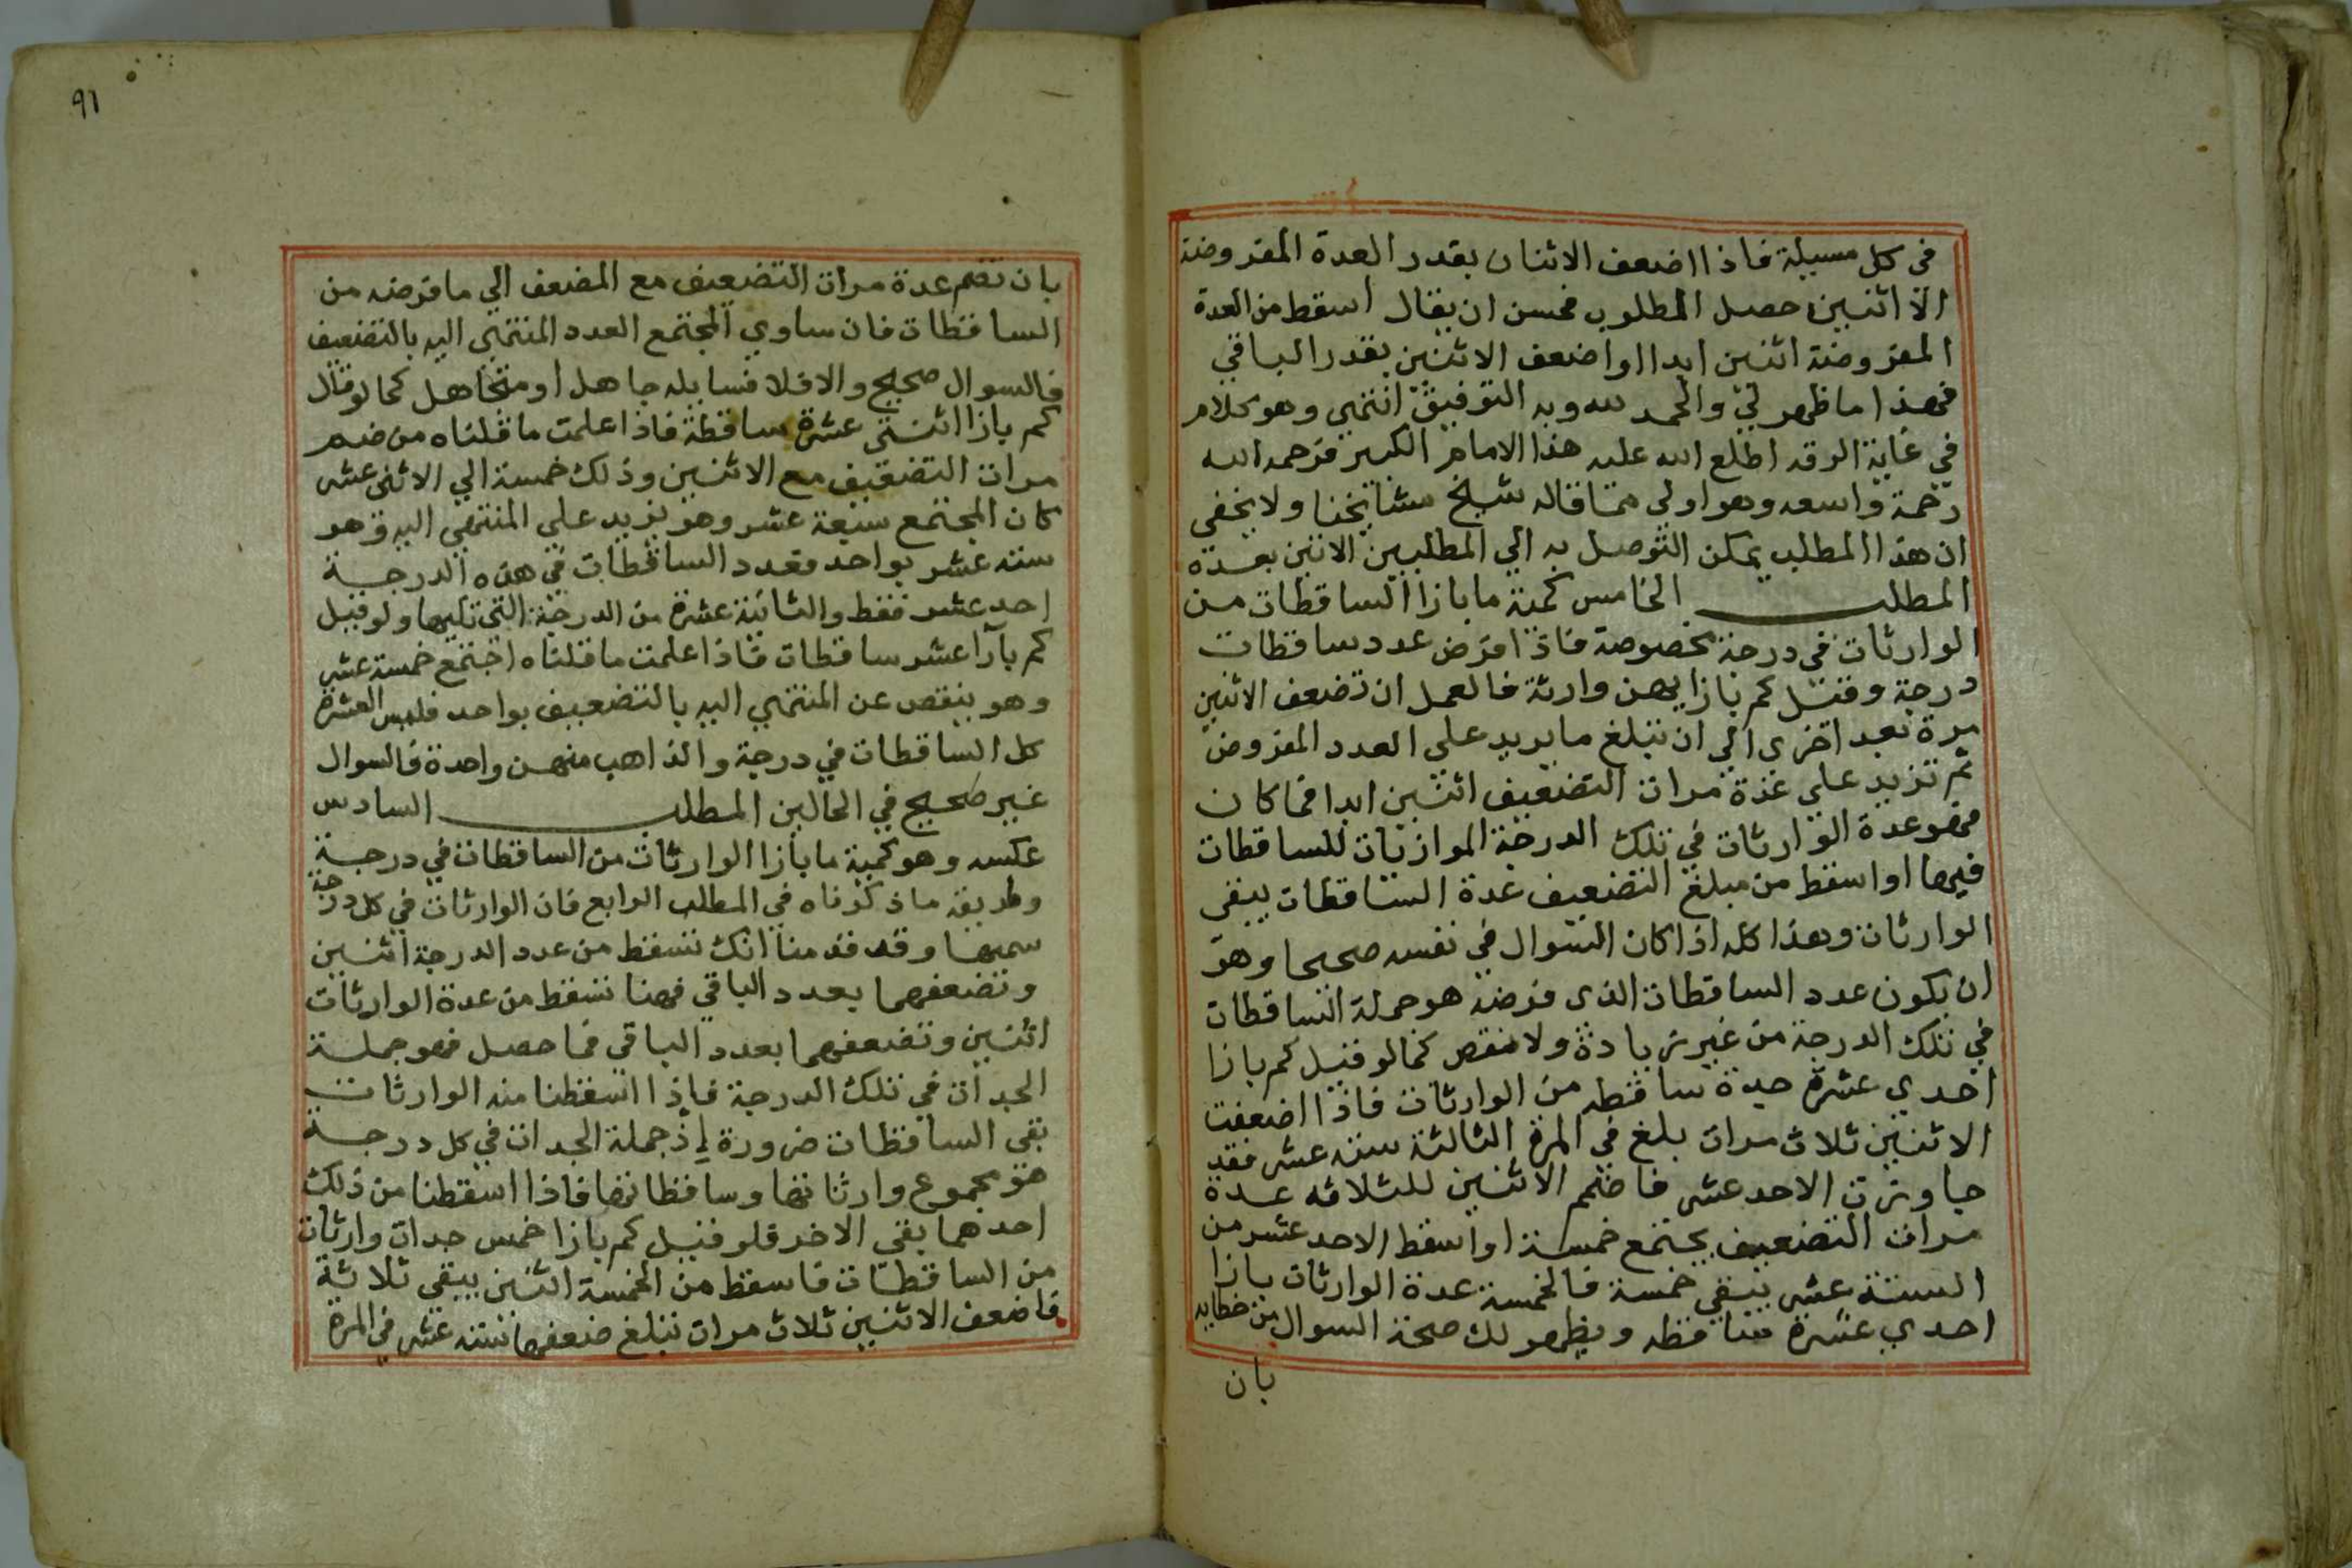 في كل مسيلة فاذا اضعف الاثنان بقدر العدة المفروضة
الا اثنين حصل المطلوب فحسن ان يقال اسقط من العدة
المفروضة اثنين ابدا واضعف الاثنين بقدر الباقي
فهذا ما ظهر لي والحمد لله وبه التوفيق انتهى وهو كلام
في غاية الدقه اطلع الله عليه هذا الامام الكبير فرحمه الله
رحمة واسعه وهو اولى مما قاله شيخ مشايخنا ولا يخفى
ان هذا المطلب يمكن التوصل به الي المطلبين الاتيين بعده
المطلب الخامس كمية ما بازا الساقطات من
الوارثات في درجة مخصوصة فاذا فرض عدد ساقطات
درجة وقيل كم بازايهن وارثة فالعمل ان تضعف الاثنين
مرة بعد اخرى الي ان تبلغ ما يزيد على العدد المفروض
ثم تزيد على عدة مرات التضعيف اثنين ابدا فما كان
فهو عدة الوارثات في تلك الدرجة الموازيات للساقطات
فيها او اسقط من مبلغ التضعيف عدة الساقطات يبقى
الوارثات وهذا كله اذا كان السوال في نفسه صحيحا وهو
ان يكون عدد الساقطات الذى فرضه هو جملة الساقطات
في تلك الدرجة من غير زيادة ولا نقص كما لو قيل كم بازا
احدي عشرة جدة ساقطه من الوارثات فاذا اضعفت
الاثنين ثلاث مرات بلغ في المرة الثالثة ستة عشر فقد
جاوزت الاحد عشر فاضمم الاثنين للثلاثه عدة
مرات التضعيف يجتمع خمسة او اسقط الاحد عشر من
الستة عشر يبقي خمسة فالخمسة عدة الوارثات بازا
احدي عشرة ساقطه ويظهر لك صحة السوال من خطايه
بان
٩١
بان تضم عدة مرات التضعيف مع المضعف الي ما فرضه من
الساقطات فان ساوي المجتمع العدد المنتهي اليه بالتضعيف
فالسوال صحيح والا فلا فسايله جاهل او متجاهل كما لو قال
كم بازا اثنتي عشرة ساقطة فاذا علمت ما قلناه من ضم
مرات التضعيف مع الاثنين وذلك خمسة الي الاثنى عشر
كان المجتمع سبعة عشر وهو يزيد على المنتهى اليه وهو
ستة عشر بواحد فعدد الساقطات في هذه الدرجة
احد عشر فقط والثانية عشرة من الدرجة التي تليها ولو قيل
كم بازا عشر ساقطات فاذا علمت ما قلناه اجتمع خمسة عشر
وهو ينقص عن المنتهي اليه بالتضعيف بواحد فليس العشرة
كل الساقطات في درجة والذاهب منهن واحدة فالسوال
غير صحيح في الحالين المطلب السادس
عكسه وهو كمية ما بازا الوارثات من الساقطات في درجة
وطريقه ما ذكرناه في المطلب الرابع فان الوارثات في كل درجة
سميها وقد قدمنا انك تسقط من عدد الدرجة اثنين
وتضعفهما بعدد الباقي فهنا تسقط من عدة الوارثات
اثنين وتضعفهما بعدد الباقي فما حصل فهو جملة
الجدات في تلك الدرجة فاذا اسقطنا منه الوارثات
بقى الساقطات ضرورة اذ جملة الجدات في كل درجة
هو مجموع وارثاتها وساقطاتها فاذا اسقطنا من ذلك
احدهما بقى الاخر فلو قيل كم بازا خمس جدات وارثات
من الساقطات فاسقط من الخمسة اثنين يبقى ثلاثة
فاضعف الاثنين ثلاث مرات تبلغ ضعفها ستة عشر في المرة